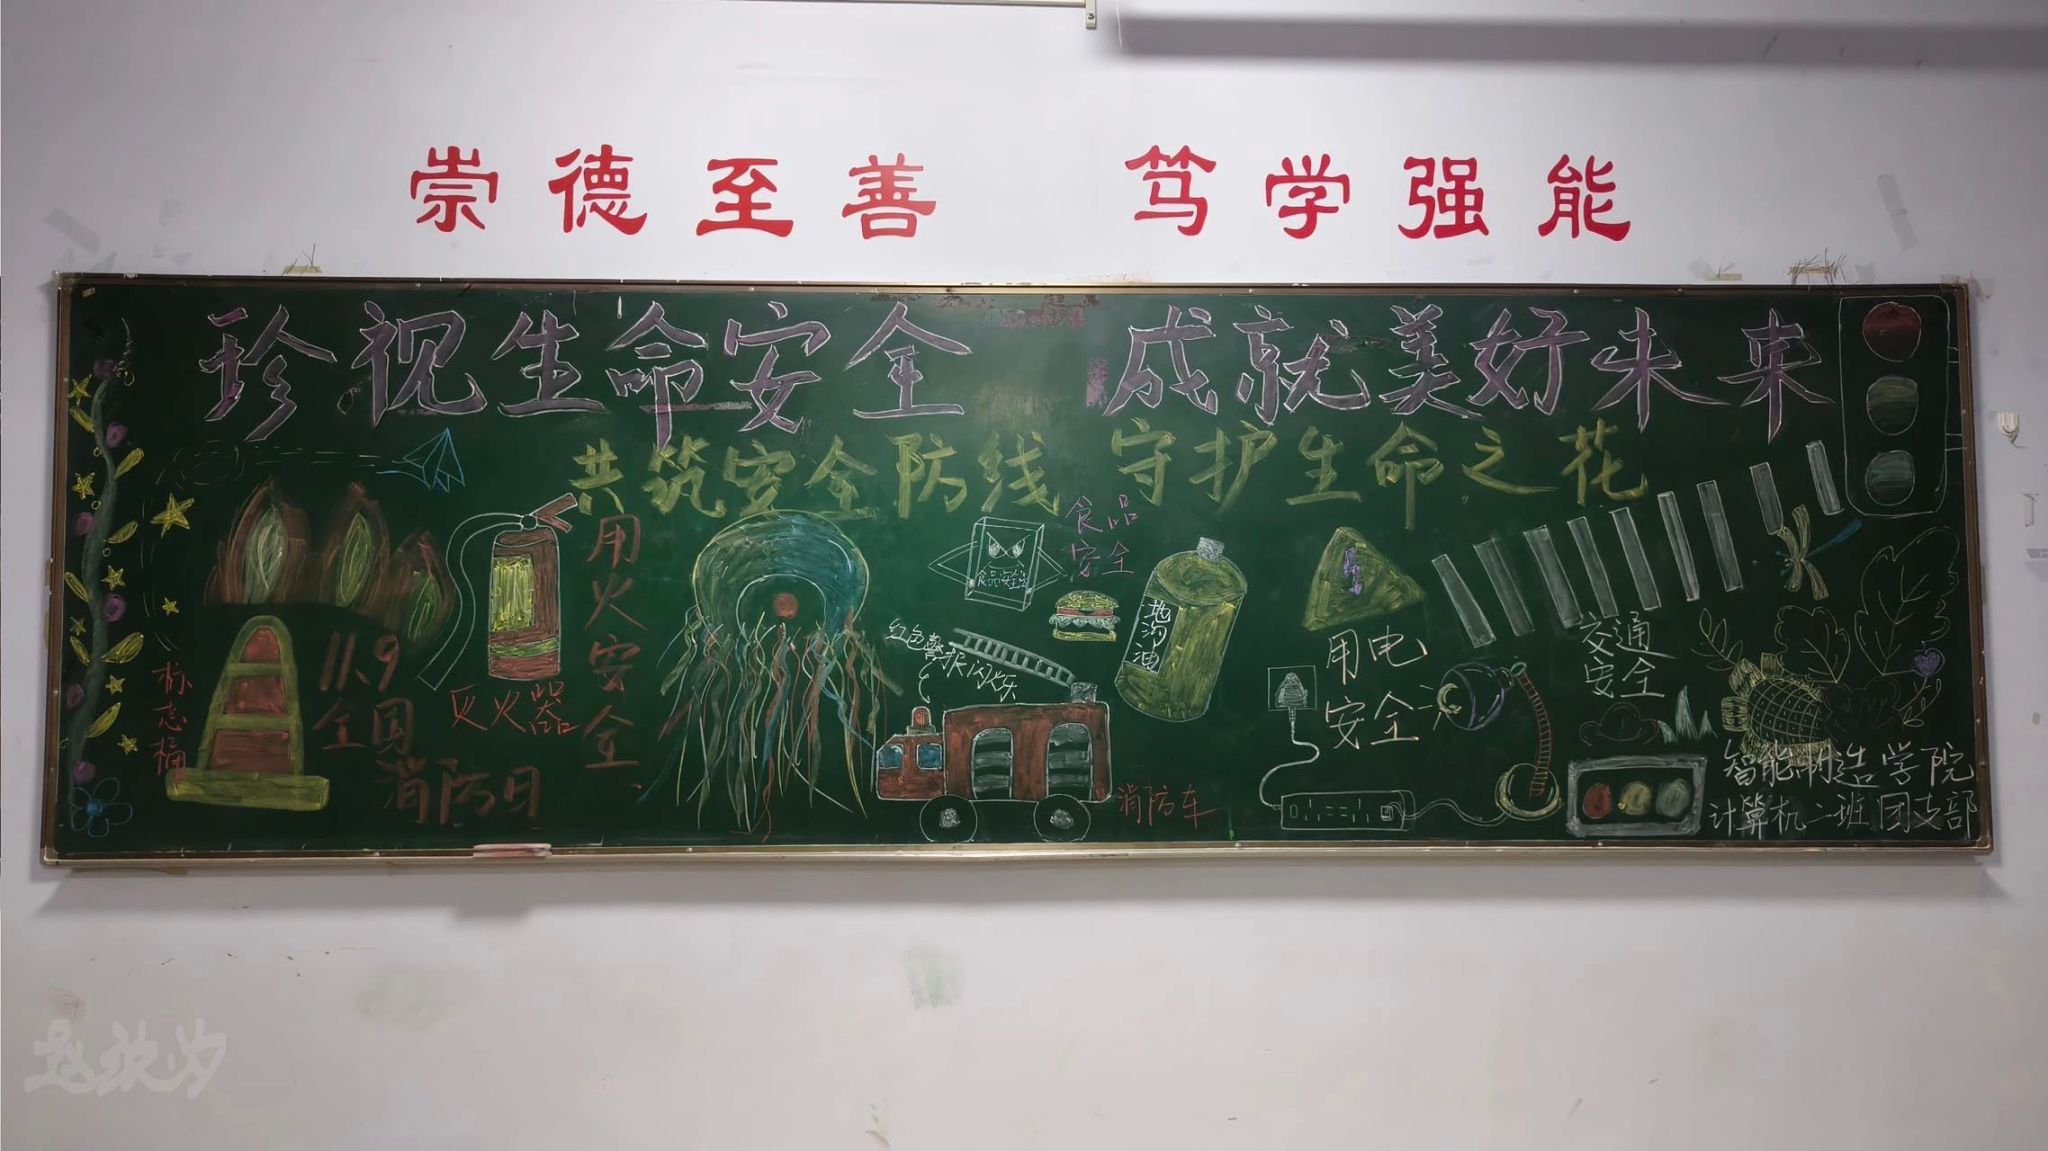 崇德至善 笃学强能
珍视生命安全 成就美好未来
共筑安全防线 守护生命之花
标志桶
11.9
全国
消防日
灭火器
用火安全
食品
安全
食品安全
地沟油
红色警报闪烁
消防车
用电
安全
交通
安全
智能制造学院
计算机二班团支部